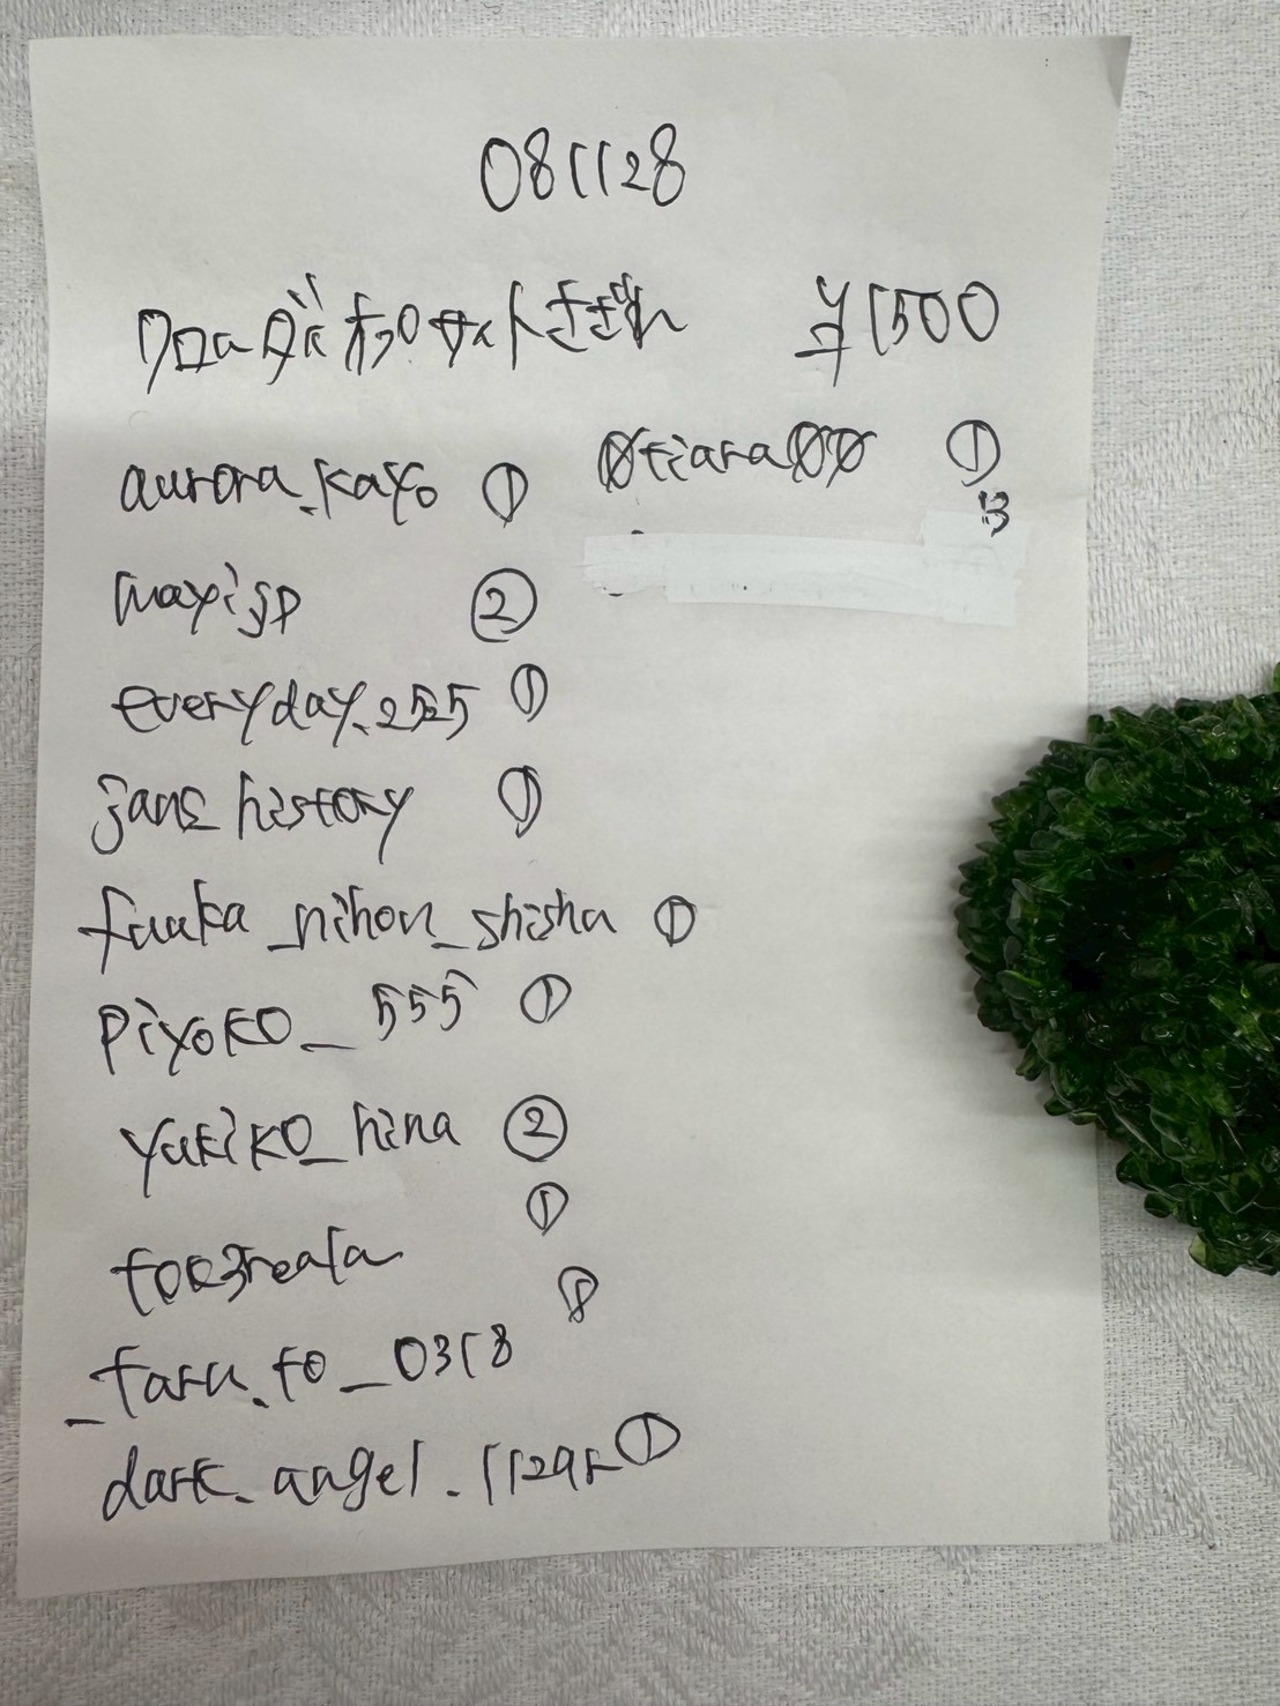 081128
クロムダイオプサイトさざれ ¥1500
aurora_kayo ①
mayijp ②
everyday.2525 ①
jans_history ①
fuuka_nihon_shisha ①
piyoko_555 ①
yukiko_hina ②
①
_taru.to_0318 ⑧
dark.angel.1129r ①
0tiara00 ①
13